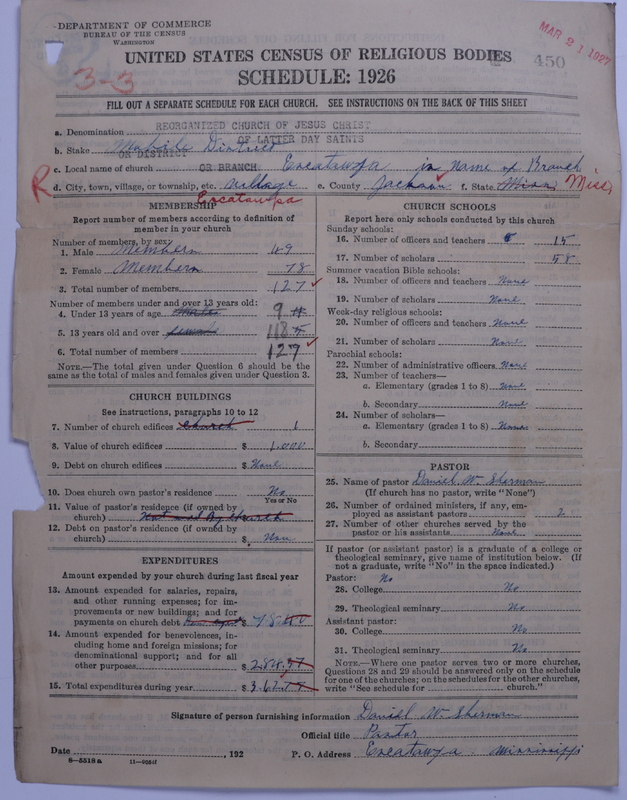 DEPARTMENT OF COMMERCE
BUREAU OF THE CENSUS
WASHINGTON
MAR 21 1927
UNITED STATES CENSUS OF RELIGIOUS BODIES
450
3-3
SCHEDULE: 1926
FILL OUT A SEPARATE SCHEDULE FOR EACH CHURCH. SEE INSTRUCTIONS ON THE BACK OF THIS SHEET
a. Denomination REORGANIZED CHURCH OF JESUS CHRIST
OF LATTER DAY SAINTS
b. Stake Mobile District
OR DISTRICT
c. Local name of church OR BRANCH Escatawpa in Name of Branch
R d. City, town, village, or township, etc. Village e. County Jackson f. State Miss Miss
Escatawpa
MEMBERSHIP
Report number of members according to definition of
member in your church
Number of members, by sex:
1. Male Members 49
2. Female Members 78
3. Total number of members 127
Number of members under and over 13 years old:
4. Under 13 years of age 9
5. 13 years old and over 118
6. Total number of members 127
NOTE.—The total given under Question 6 should be the
same as the total of males and females given under Question 3.
CHURCH BUILDINGS
See instructions, paragraphs 10 to 12
7. Number of church edifices Church 1
8. Value of church edifices $ 1,000
9. Debt on church edifices $ None
10. Does church own pastor's residence No
Yes or No
11. Value of pastor's residence (if owned by
church) Not owned By Church
12. Debt on pastor's residence (if owned by
church) $ None
EXPENDITURES
Amount expended by your church during last fiscal year
13. Amount expended for salaries, repairs,
and other running expenses; for im-
provements or new buildings; and for
payments on church debt $
14. Amount expended for benevolences, in-
cluding home and foreign missions; for
denominational support; and for all
other purposes $
15. Total expenditures during year $
CHURCH SCHOOLS
Report here only schools conducted by this church
Sunday schools:
16. Number of officers and teachers 15
17. Number of scholars 58
Summer vacation Bible schools:
18. Number of officers and teachers None
19. Number of scholars None
Week-day religious schools:
20. Number of officers and teachers None
21. Number of scholars None
Parochial schools:
22. Number of administrative officers None
23. Number of teachers—
a. Elementary (grades 1 to 8) None
b. Secondary None
24. Number of scholars—
a. Elementary (grades 1 to 8) None
b. Secondary
PASTOR
25. Name of pastor Daniel W. Sherman
(If church has no pastor, write "None")
26. Number of ordained ministers, if any, em-
ployed as assistant pastors 2
27. Number of other churches served by the
pastor or his assistants None
If pastor (or assistant pastor) is a graduate of a college or
theological seminary, give name of institution below. (If
not a graduate, write "No" in the space indicated.)
Pastor: No
28. College No
29. Theological seminary No
Assistant pastor:
30. College No
31. Theological seminary No
NOTE.—Where one pastor serves two or more churches,
Questions 28 and 29 should be answered only on the schedule
for one of the churches; on the schedules for the other churches,
write "See schedule for church."
Signature of person furnishing information Daniel W. Sherman
Official title Pastor
Date , 192 P. O. Address Escatawpa Mississippi
8—5518a 11—9264f